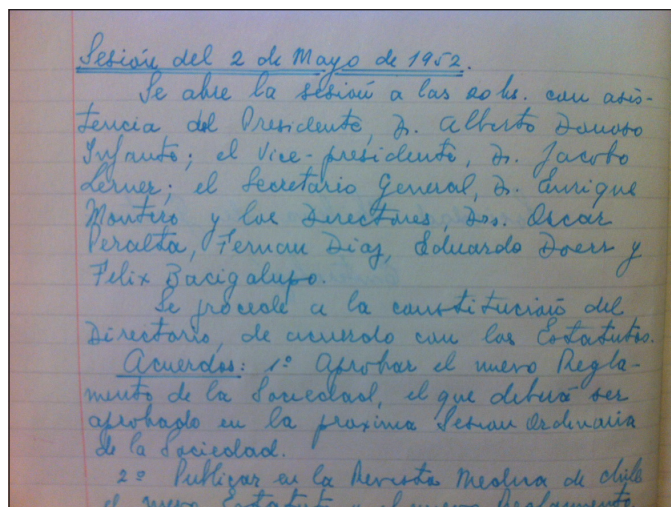 Sesión del 2 de Mayo de 1952.
Se abre la sesión a las 20 hs. con asis-
tencia del Presidente, Dr. Alberto Donoso
Infante; el Vice-presidente, Dr. Jacobo
Lerner; el Secretario General, Dr. Enrique
Montero y los Directores, Drs. Oscar
Peralta, Fernan Diaz, Eduardo Doerr y
Felix Bacigalupo.
Se procede a la constitución del
Directorio, de acuerdo con los Estatutos.
Acuerdos: 1º Aprobar el nuevo Regla-
mento de la Sociedad, el que deberá ser
aprobado en la proxima Sesion Ordinaria
de la Sociedad.
2º Publicar en la Revista Medica de Chile
el nuevo Estatuto y el nuevo Reglamento